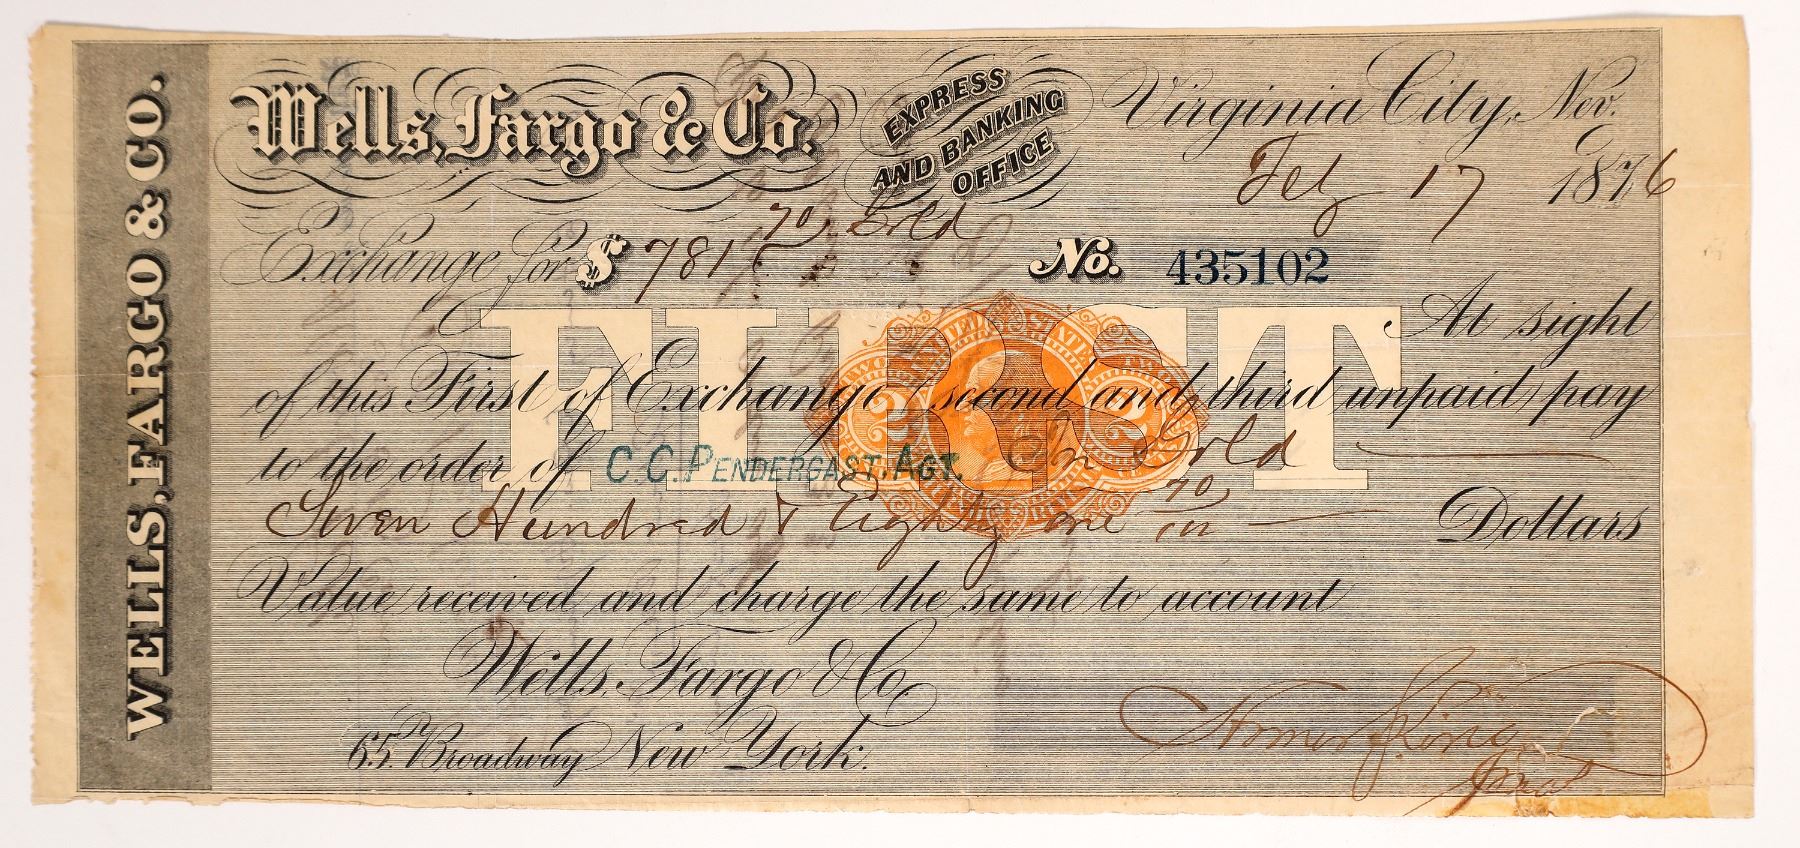 WELLS, FARGO & CO.
Wells, Fargo & Co.
EXPRESS
AND BANKING
OFFICE
Virginia City, Nev.
Feby 17 1876
Exchange for $ 781 70 Gold
No. 435102
FIRST
At sight
of this First of Exchange (second and third unpaid) pay
to the order of C. C. PENDERGAST, AGT. In Gold
Seven Hundred & Eighty one 70/100 Dollars
UNITED STATES
2 2
Value received and charge the same to account
Wells, Fargo & Co
65 Broadway New York.
Homer S. King